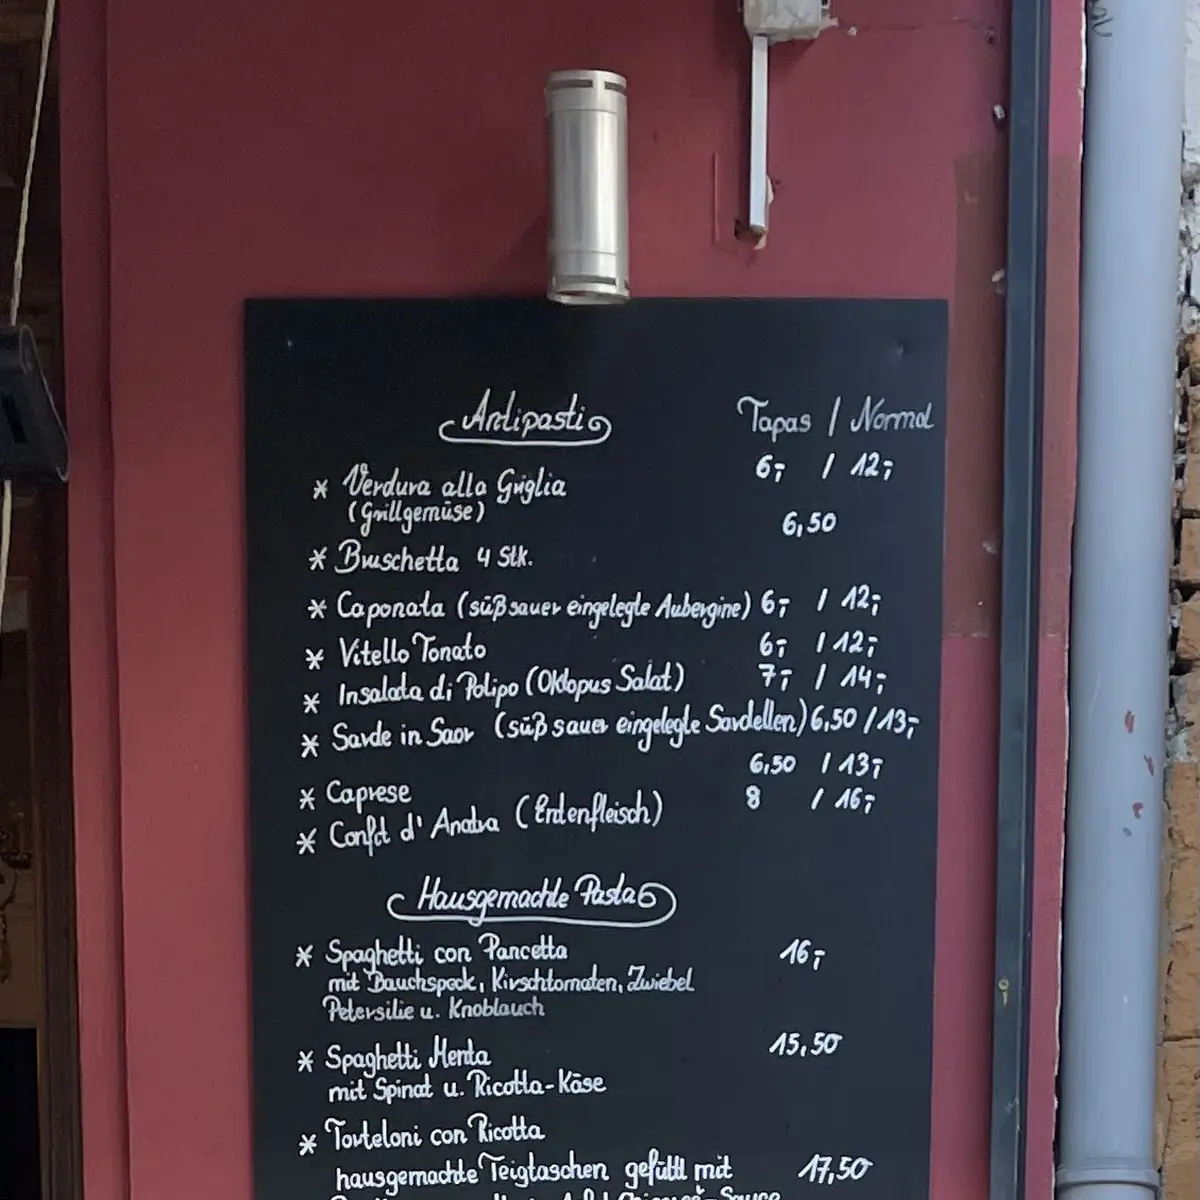 Antipasti Tapas / Normal
* Verdura alla Griglia 6,- / 12,-
(Grillgemüse)
6,50
* Bruschetta 4 Stk.
* Caponata (süßsauer eingelegte Aubergine) 6,- / 12,-
* Vitello Tonato 6,- / 12,-
* Insalata di Polipo (Oktopus Salat) 7,- / 14,-
* Sarde in Saor (süßsauer eingelegte Sardellen) 6,50 / 13,-
* Caprese 6,50 / 13,-
* Confit d' Anatra (Entenfleisch) 8 / 16,-
Hausgemachte Pasta
* Spaghetti con Pancetta 16,-
mit Bauchspeck, Kirschtomaten, Zwiebel
Petersilie u. Knoblauch
* Spaghetti Menta 15,50
mit Spinat u. Ricotta-Käse
* Torteloni con Ricotta
hausgemachte Teigtaschen gefüllt mit 17,50